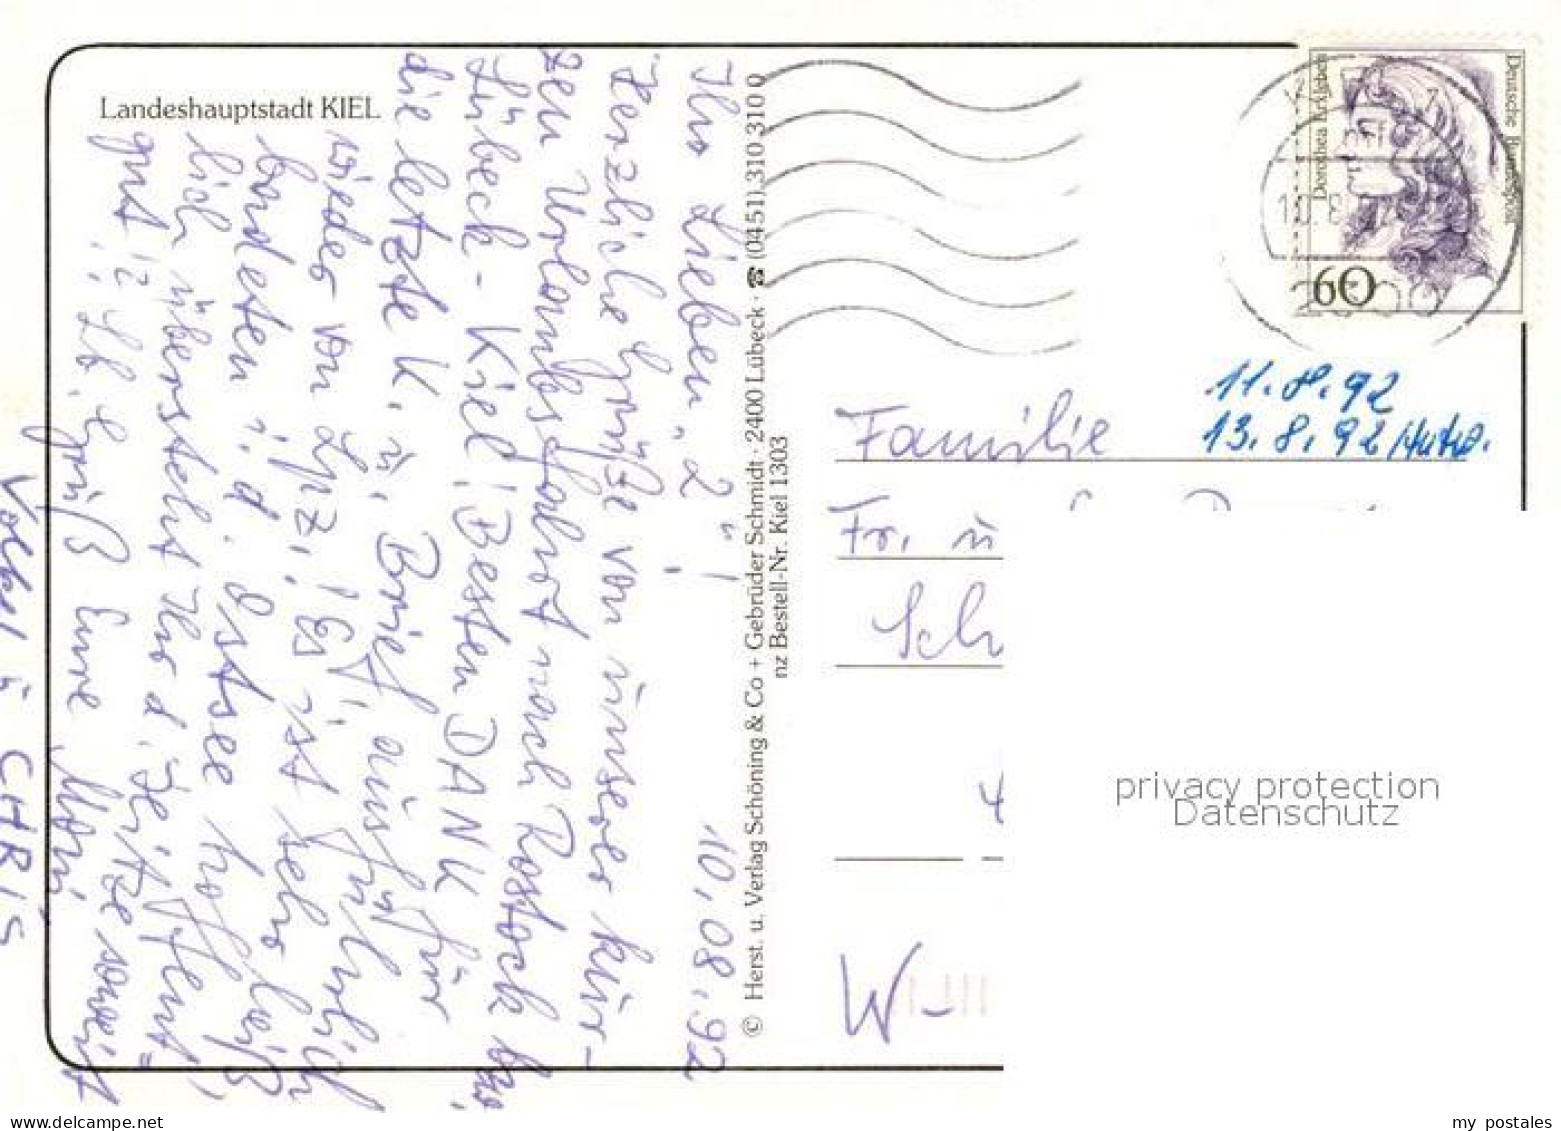 Landeshauptstadt KIEL
Ihr Lieben „2“! 10.08.92
Herzliche Grüße von unserer kur-
zen Urlaubsfahrt nach Rostock
Lübeck - Kiel! Besten DANK für
die letzte K. u. Brief ausführlich
wieder von Lpz.! Es ist sehr heiß
badeten i. d. Ostsee hoffent=
lich übersteht Ihr d. Hitze soweit
gut!? Lb. Grüß Eure
CHRIS
© Herst. u. Verlag Schöning & Co + Gebrüder Schmidt · 2400 Lübeck · ☎ (0451) 310 310 0
nz Bestell-Nr. Kiel 1303
Deutsche Bundespost
Dorothea Erxleben
60
11.8.92
13.8.92
Familie
Fr. u
Sch
W-
privacy protection
Datenschutz
www.delcampe.net
my_postales